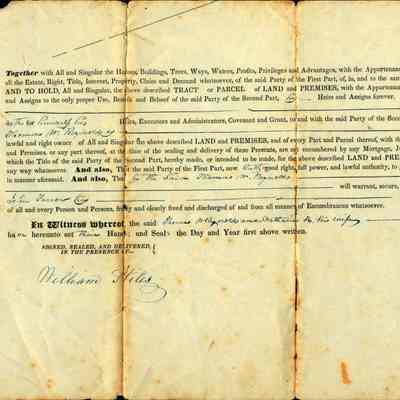 Together with All and Singular the Houses, Buildings, Trees, Ways, Waters, Profits, Privileges and Advantages, with the Appurtenan
all the Estate, Right, Title, Interest, Property, Claim and Demand whatsoever, of the said Party of the First Part, of, in, and to the sam
AND TO HOLD, All and Singular, the above described TRACT or PARCEL of LAND and PREMISES, with the Appurtenan
and Assigns to the only proper Use, Benefit and Behoof of the said Party of the Second Part, his Heirs and Assigns forever.
Heirs, Executors and Administrators, Covenant and Grant, to and with the said Party of the Secon
Thomas W. Reynolds
lawful and right owner of All and Singular the above described LAND and PREMISES, and of every Part and Parcel thereof, with the
and Premises, or any part thereof, at the time of the sealing and delivery of these Presents, are not encumbered by any Mortgage, J
which the Title of the said Party of the Second Part, hereby made, or intended to be made, for the above described LAND and PRE
any way whatsoever. And also, That the said Party of the First Part, now hath good right, full power, and lawful authority, to
in manner aforesaid. And also, That the said Thomas W. Reynolds
will warrant, secure,
of all and every Person and Persons, freely and clearly freed and discharged of and from all manner of Encumbrances whatsoever.
In Witness whereof, the said Thomas W Reynolds and his wife
have hereunto set their Hands and Seals the Day and Year first above written.
SIGNED, SEALED, AND DELIVERED,
IN THE PRESENCE OF
William Stiles